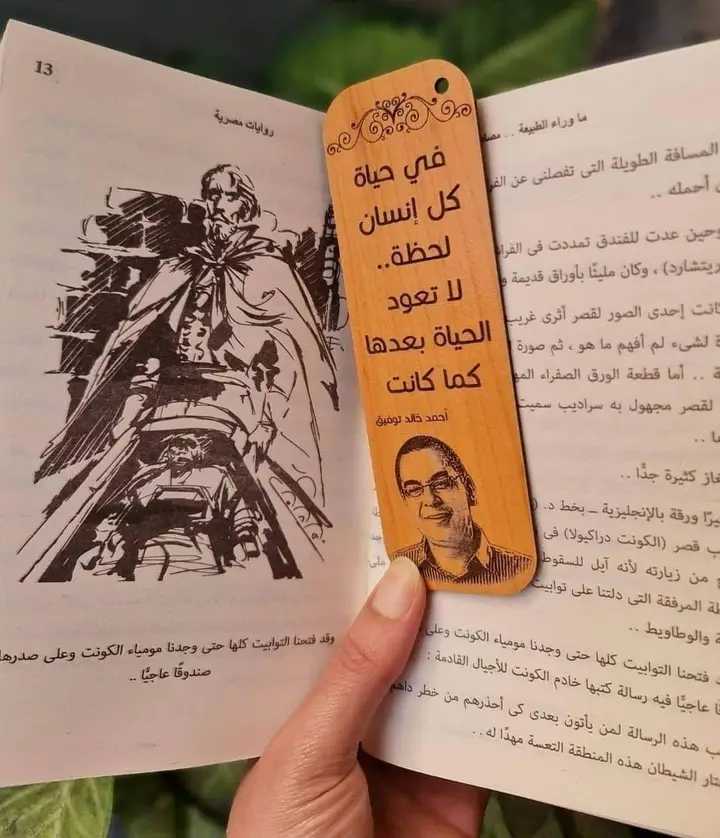 13
روايات مصرية
وقد فتحنا التوابيت كلها حتى وجدنا مومياء الكونت وعلى صدرها
صندوقًا عاجيًّا ..
في حياة
كل إنسان
لحظة..
لا تعود
الحياة بعدها
كما كانت
أحمد خالد توفيق
ما وراء الطبيعة ..
المسافة الطويلة التى تفصلنى عن
أحمله ..
وحين عدت للفندق تمددت فى
ريتشارد) ، وكان مليئًا بأوراق قديمة
كانت إحدى الصور لقصر أثرى غريب
لشىء لم أفهم ما هو ، ثم صورة
.. أما قطعة الورق الصفراء
لقصر مجهول به سراديب سميت
كثيرة جدًّا ..
ورقة بالإنجليزية ــ بخط د.
قصر (الكونت دراكيولا) فى
من زيارته لأنه آيل للسقوط
المرفقة التى دلتنا على توابيت
والوطاويط ..
فتحنا التوابيت كلها حتى وجدنا مومياء الكونت وعلى
عاجيًّا فيه رسالة كتبها خادم الكونت للأجيال القادمة :
هذه الرسالة لمن يأتون بعدى كى أحذرهم من خطر داهم
الشيطان هذه المنطقة التعسة مهدًا له ..